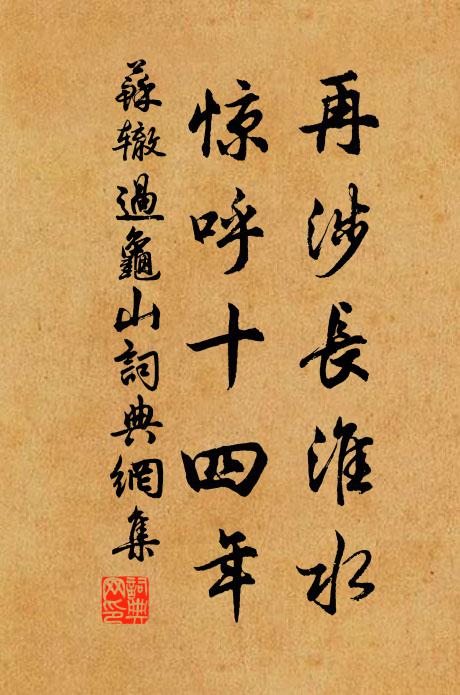 再涉長淮水
惊呼十四年
蘇辙過龜山詞典網集
詞典网印